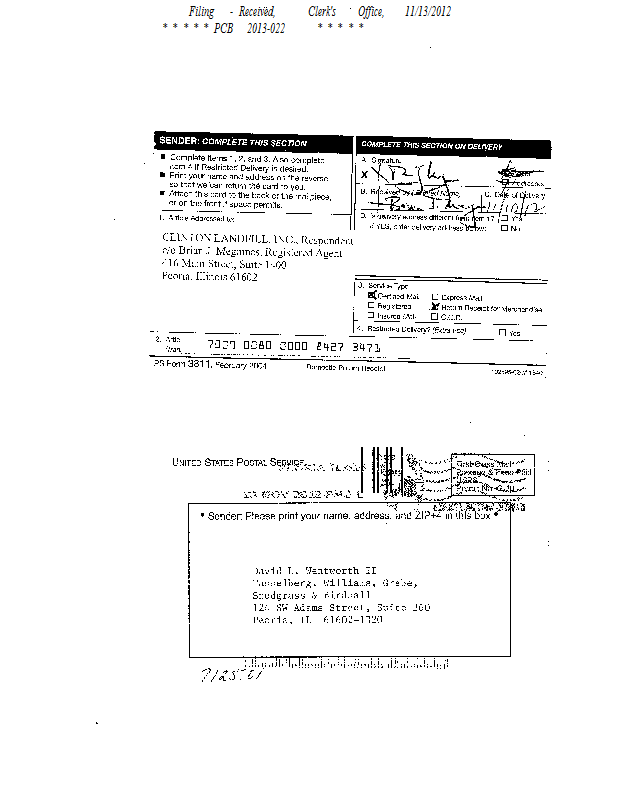 Filing - Received, Clerk's Office, 11/13/2012
* * * * * PCB 2013-022 * * * * *
SENDER: COMPLETE THIS SECTION
■ Complete items 1, 2, and 3. Also complete
item 4 if Restricted Delivery is desired.
■ Print your name and address on the reverse
so that we can return the card to you.
■ Attach this card to the back of the mailpiece,
or on the front if space permits.
1. Article Addressed to:
CLINTON LANDFILL, INC., Respondent
c/o Brian J. Meginnes, Registered Agent
416 Main Street, Suite 1400
Peoria, Illinois 61602
2. Artic
(Tran
PS Form 3811, February 2004
Domestic Return Receipt
COMPLETE THIS SECTION ON DELIVERY
A. Signature
X
B. Received by
C. Date of Delivery
D. Is delivery address different from item 1? Yes
If YES, enter delivery address below: No
3. Service Type
Certified Mail Express Mail
Registered Return Receipt for Merchandise
Insured Mail C.O.D.
4. Restricted Delivery? (Extra Fee) Yes
UNITED STATES POSTAL SERVICE
First-Class Mail
Postage & Fees Paid
USPS
Permit No. G-10
• Sender: Please print your name, address, and ZIP+4 in this box •
David L. Wentworth II
Hasselberg, Williams, Grebe,
Snodgrass & Birdsall
124 SW Adams Street, Suite 360
Peoria, IL 61602-1320